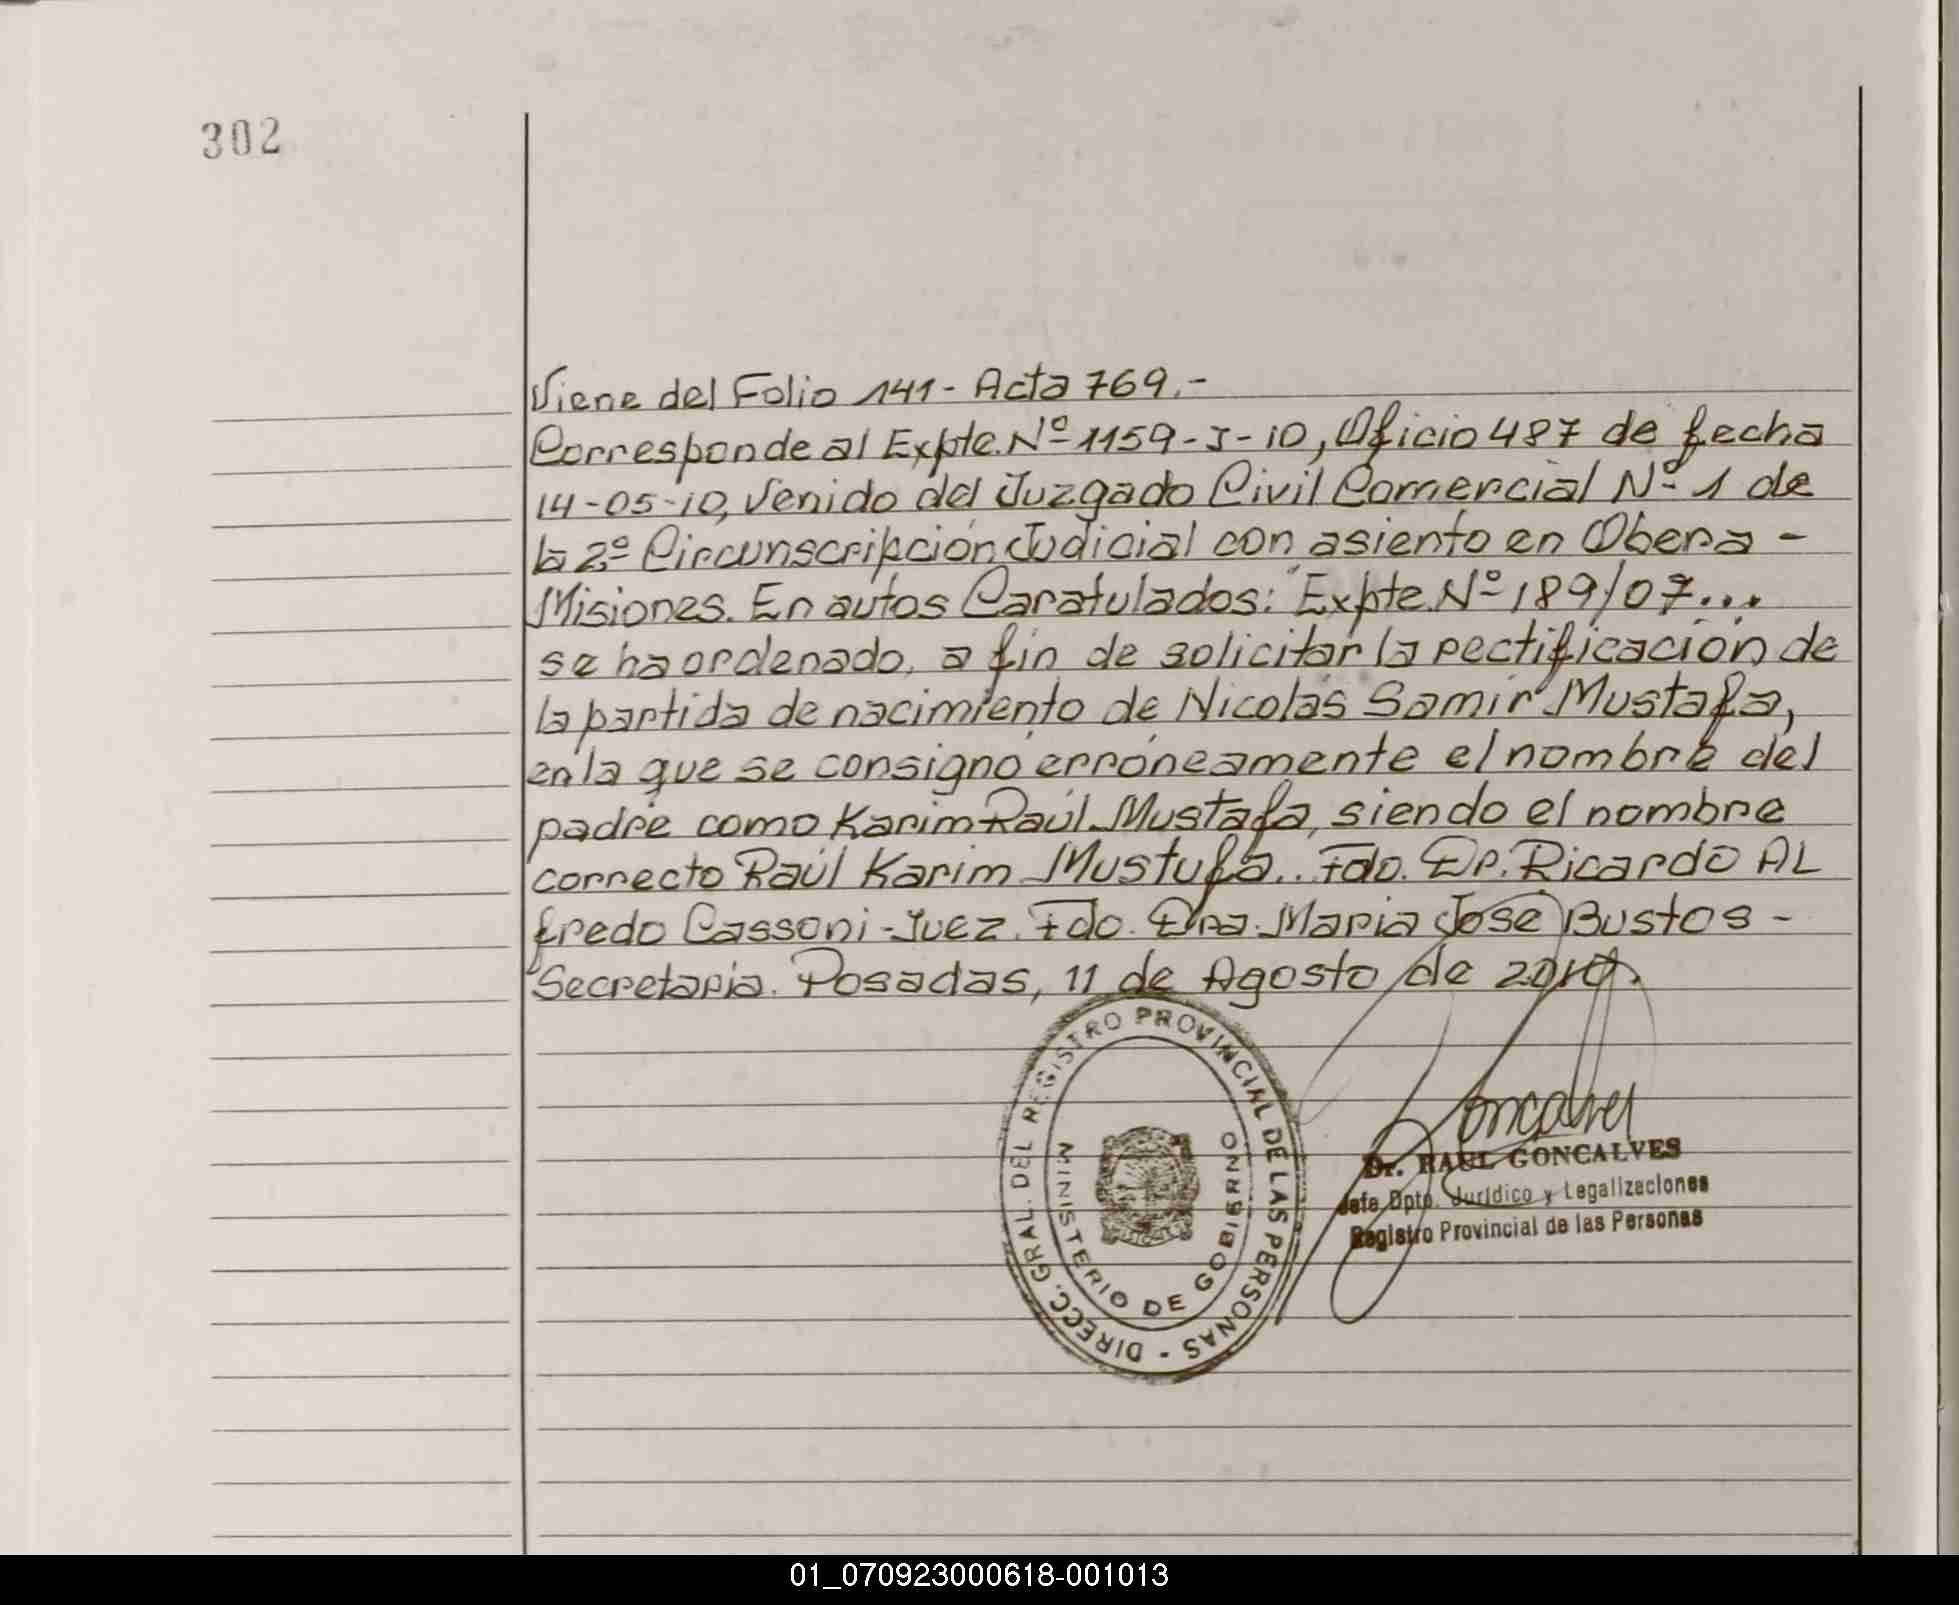 302
Viene del Folio 141- Acta 769.-
Corresponde al Expte. Nº 1159-J-10, Oficio 487 de fecha
14-05-10, Venido del Juzgado Civil Comercial Nº 1 de
la 2º Circunscripción Judicial con asiento en Obera -
Misiones. En autos Caratulados: "Expte. Nº 189/07...
se ha ordenado, a fin de solicitar la rectificación de
la partida de nacimiento de Nicolás Samir Mustafa,
en la que se consignó erróneamente el nombre del
padre como Karim Raúl Mustafa, siendo el nombre
correcto Raúl Karim Mustufa.. Fdo. Dr. Ricardo AL
fredo Cassoni-Juez. Fdo. Dra. Maria José Bustos -
Secretaria. Posadas, 11 de Agosto de 2010.
DIRECC. GRAL. DEL REGISTRO PROVINCIAL DE LAS PERSONAS -
MINISTERIO DE GOBIERNO
Goncalves
Dr. RAUL GONCALVES
Jefe Dpto. Jurídico y Legalizaciones
Registro Provincial de las Personas
01_070923000618-001013